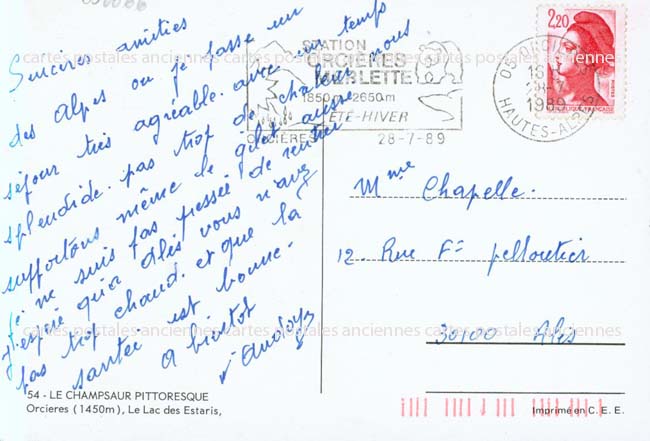 Sincères amities
des Alpes ou je passe un
séjour très agréable. avec un temps
splendide. pas trop de chaleur nous
supportons même le gilet aussi
je ne suis pas pressée de rentrer
j'espère qu'a Alès vous n'avez
pas trop chaud. et que la
santée est bonne.
a bientot
54 - LE CHAMPSAUR PITTORESQUE
Orcieres (1450m), Le Lac des Estaris,
STATION
ORCIERES
MERLETTE
1850m 2650m
ÉTÉ-HIVER
ORCIÈRES
28-7-89
05 ORCIÈRES
28-7
1989
HAUTES-ALPES
2,20
Mme Chapelle.
12. Rue Fd pelloutier
30100 Alès
Imprimé en C.E.E.
cartes postales anciennes cartes postales anciennes cartes postales anciennes
cartes postales anciennes cartes postales anciennes cartes postales anciennes